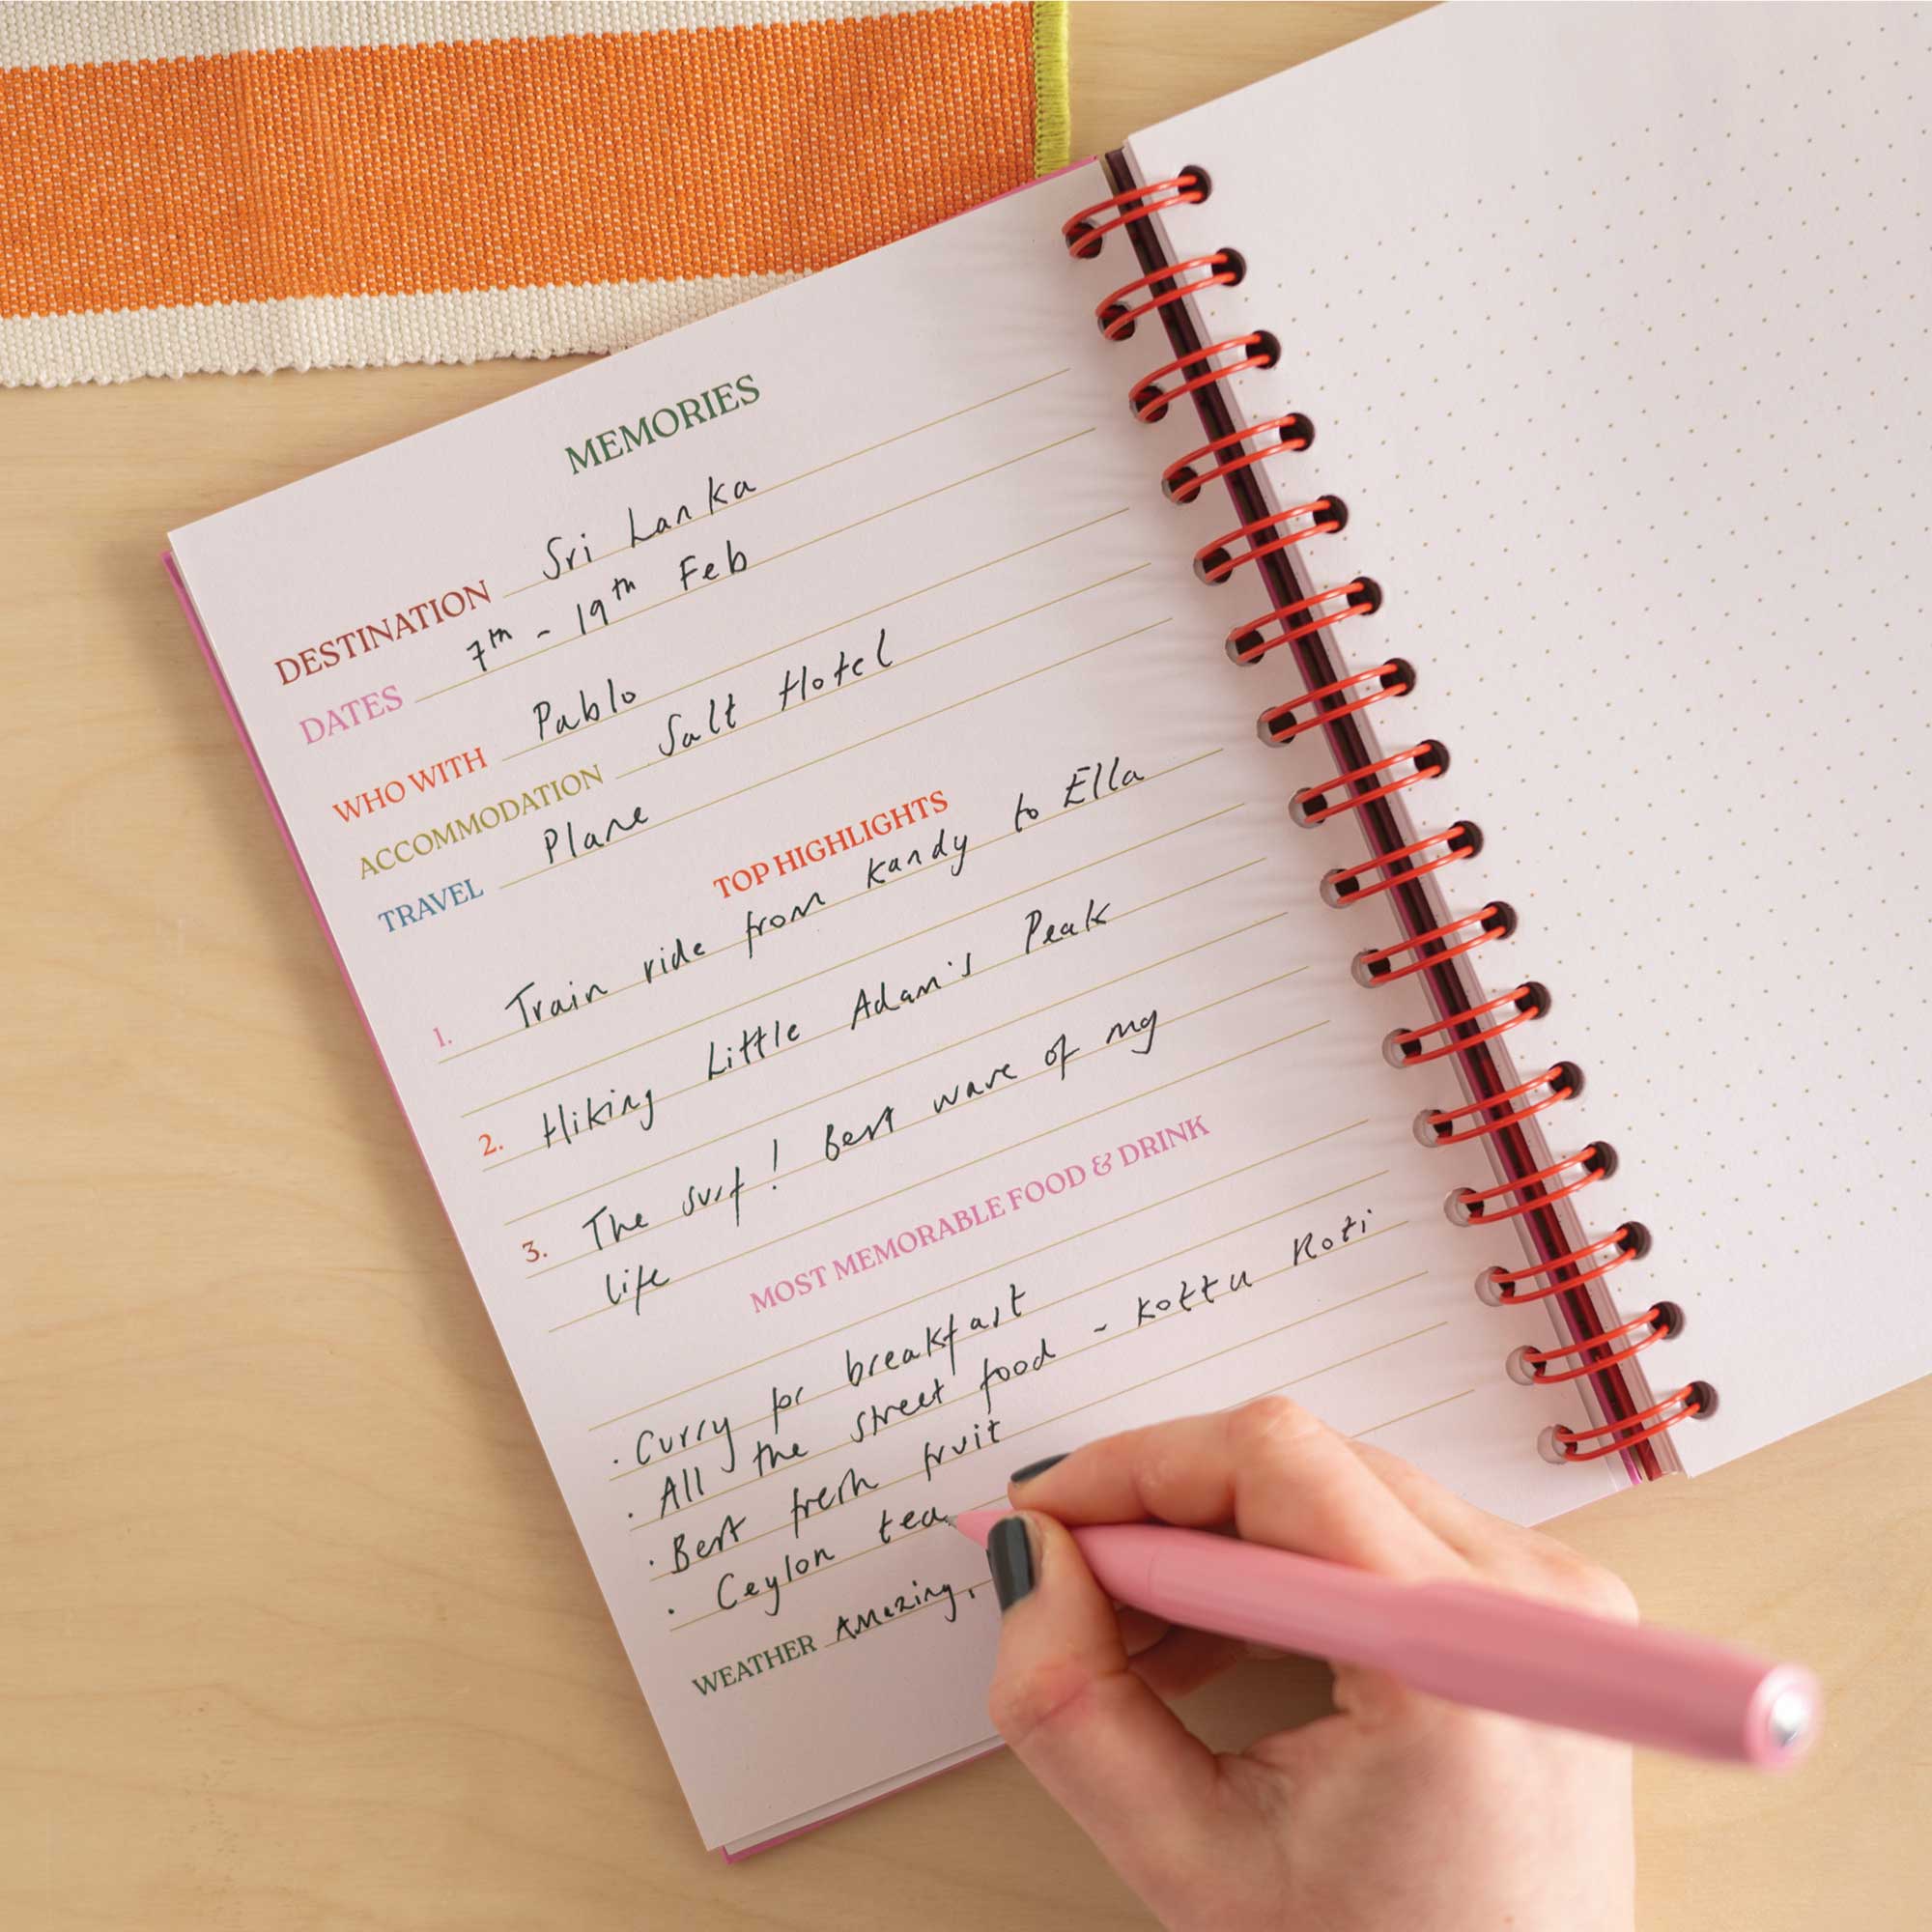 MEMORIES
DESTINATION Sri Lanka
DATES 7th - 19th Feb
WHO WITH Pablo
ACCOMMODATION Salt Hotel
TRAVEL Plane
TOP HIGHLIGHTS
1. Train ride from Kandy to Ella
2. Hiking Little Adam's Peak
3. The surf! Best wave of my
life
MOST MEMORABLE FOOD & DRINK
· Curry for breakfast
· All the street food - Kottu Roti
· Best fresh fruit
· Ceylon tea
WEATHER Amazing,